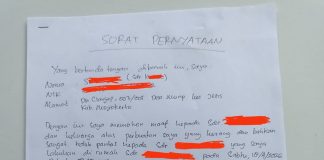 SURAT PERNYATAAN
Yang bertanda tangan dibawah ini, saya
Nama
NIK
Alamat Kab. Mojokerto
Dengan ini saya memohon maaf kepada Sdr
dan keluarga atas perbuatan saya yang kurang dan bahkan
sangat tidak pantas kepada Sdr yang saya
lakukan di rumah Sdr pada Sabtu,